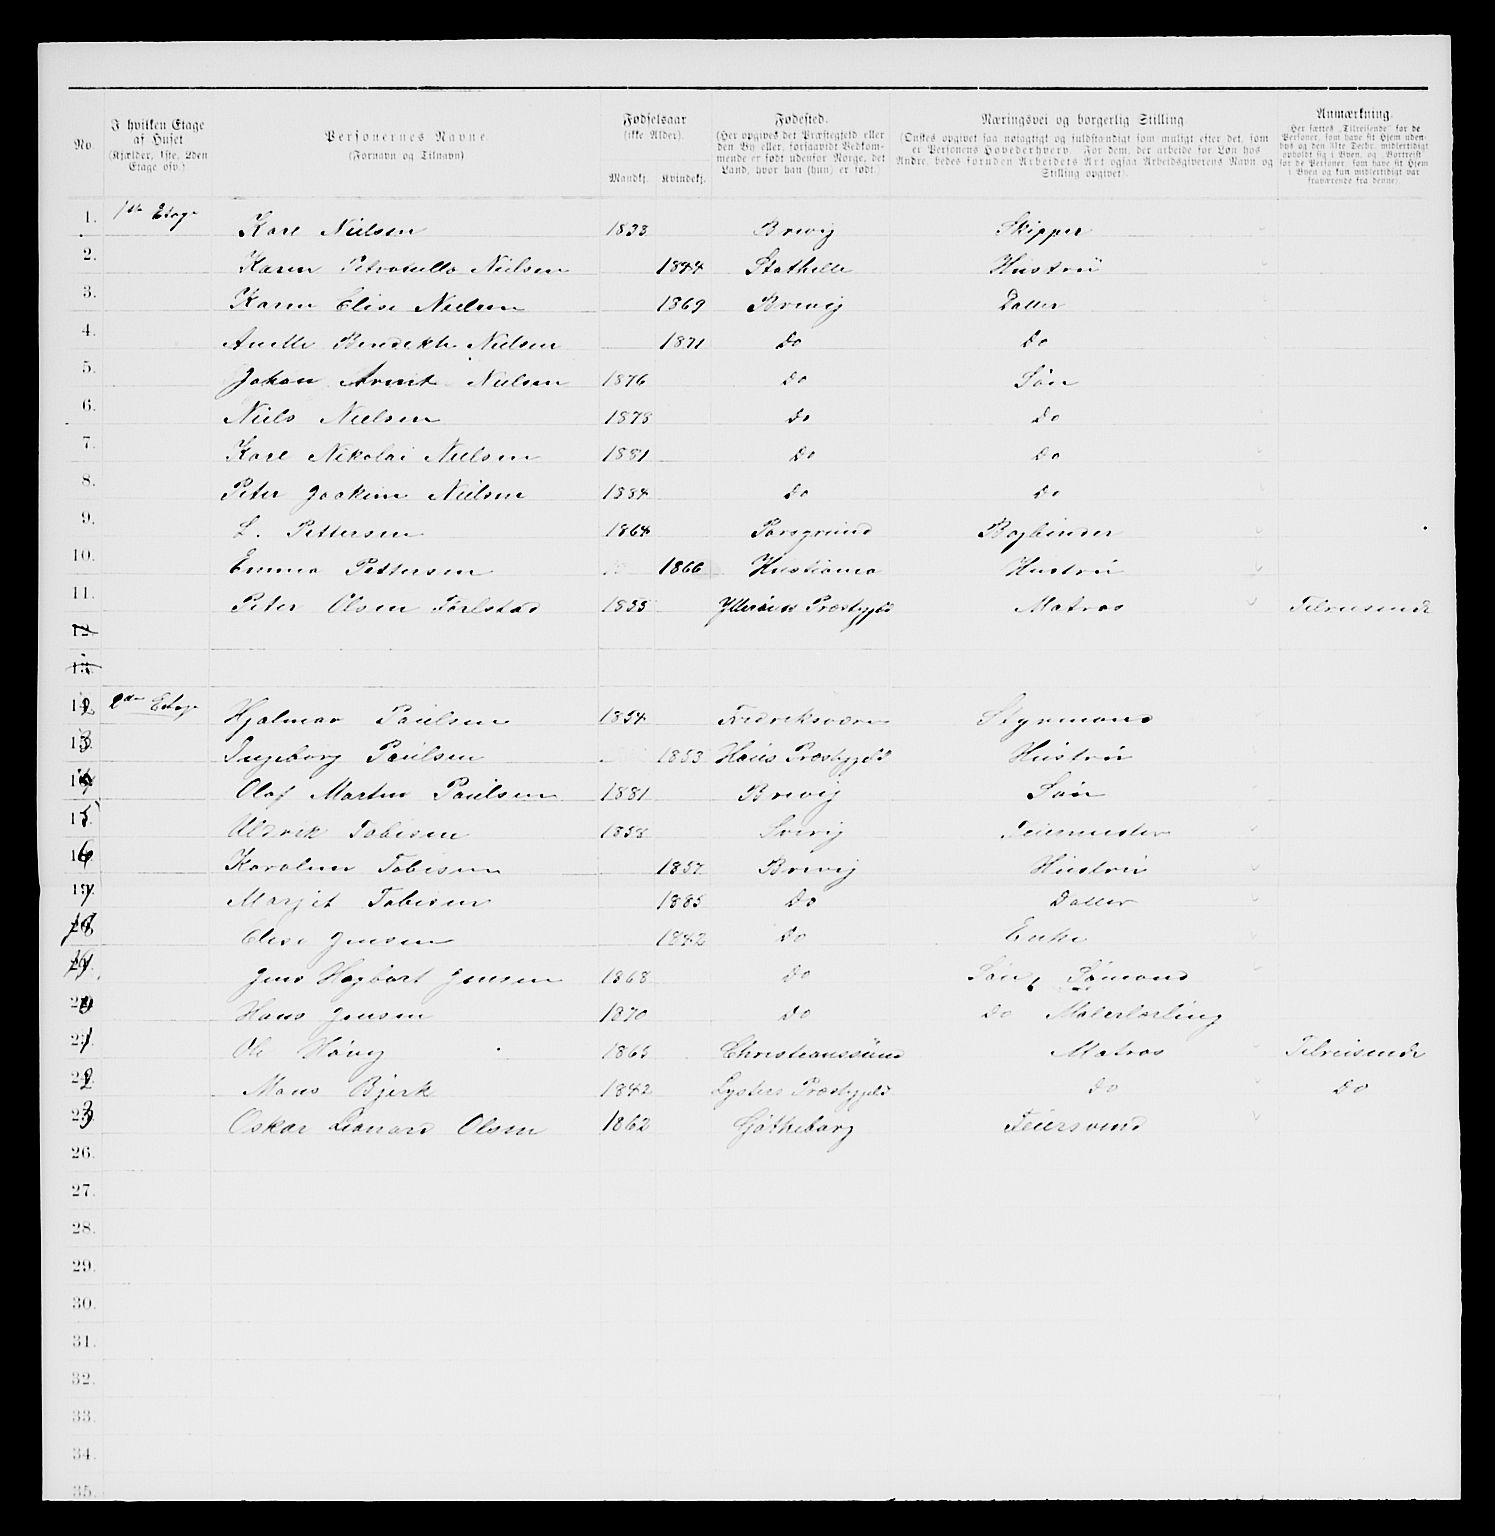 No.
I hvilken Etage af Huset (Kjælder, 1ste, 2den Etage osv.)
Personernes Navne. (Fornavn og Tilnavn)
Fødselsaar (ikke Alder). Mandkj. Kvindekj.
Fødested. (Her opgives det Præstegjeld eller den By eller, forsaavidt Vedkommende er født udenfor Norge, det Land, hvor han (hun) er født.)
Næringsvei og borgerlig Stilling. (Ønskes opgivet saa nøiagtigt og fuldstændigt som muligt efter det, som er Personens Hovederhverv. For dem, der arbeide for Løn hos Andre, bedes foruden Arbeidets Art ogsaa Arbeidsgiverens Navn og Stilling opgivet).
Anmærkning. (Her sættes „Tilreisende" for de Personer, som have sit Hjem udenbys og den 31te Decbr. midlertidigt opholdt sig i Byen, og „Bortreist" for de Personer, som have sit Hjem i Byen og kun midlertidigt var fraværende fra denne).
1. 1ste Etage Karl Nielsen 1833 Brevig Skipper
2. Karen Petronella Nielsen 1844 Stathelle Hustrü
3. Karen Elise Nielsen 1869 Brevig Datter
4. Anette Bendekte Nielsen 1871 Do Do
5. Johan Arent Nielsen 1876 Do Søn
6. Niels Nielsen 1878 Do Do
7. Karl Nikolai Nielsen 1881 Do Do
8. Peter Joakim Nielsen 1884 Do Do
9. L. Pettersen 1864 Porsgrund Bogbinder
10. Emma Pettersen 1866 Kristiania Hustrü
11. Peter Olsen 1855 Ytterøens Præstegjeld Matros Tilreisende
12.
13.
12 2den Etage Hjalmar Paülsen 1854 Fredriksværn Styrmand
13 Ingeborg Paülsen 1853 Haüs Præstegjeld Hüstrü
14 Olaf Martin Paülsen 1881 Brevig Søn
15 Uldrik Tobisen 1858 Sverig Feiermester
16 Karoline Tobisen 1857 Brevig Hüstrü
17 Margit Tobisen 1885 Do Datter
18 Elise Jensen 1842 Do Enke
19 Jens Hagbart Jensen 1868 Do Søn, Sømand
20 Hans Jensen 1870 Do Do Malerlærling
21 Ole 1865 Christianssünd Matros Tilreisende
22 Mons Bjerk 1842 Lysters Præstegjeld Do Do
23 Oskar Leonard Olsen 1862 Gøtheborg Feiersvend
26.
27.
28.
29.
30.
31.
32.
33.
34.
35.